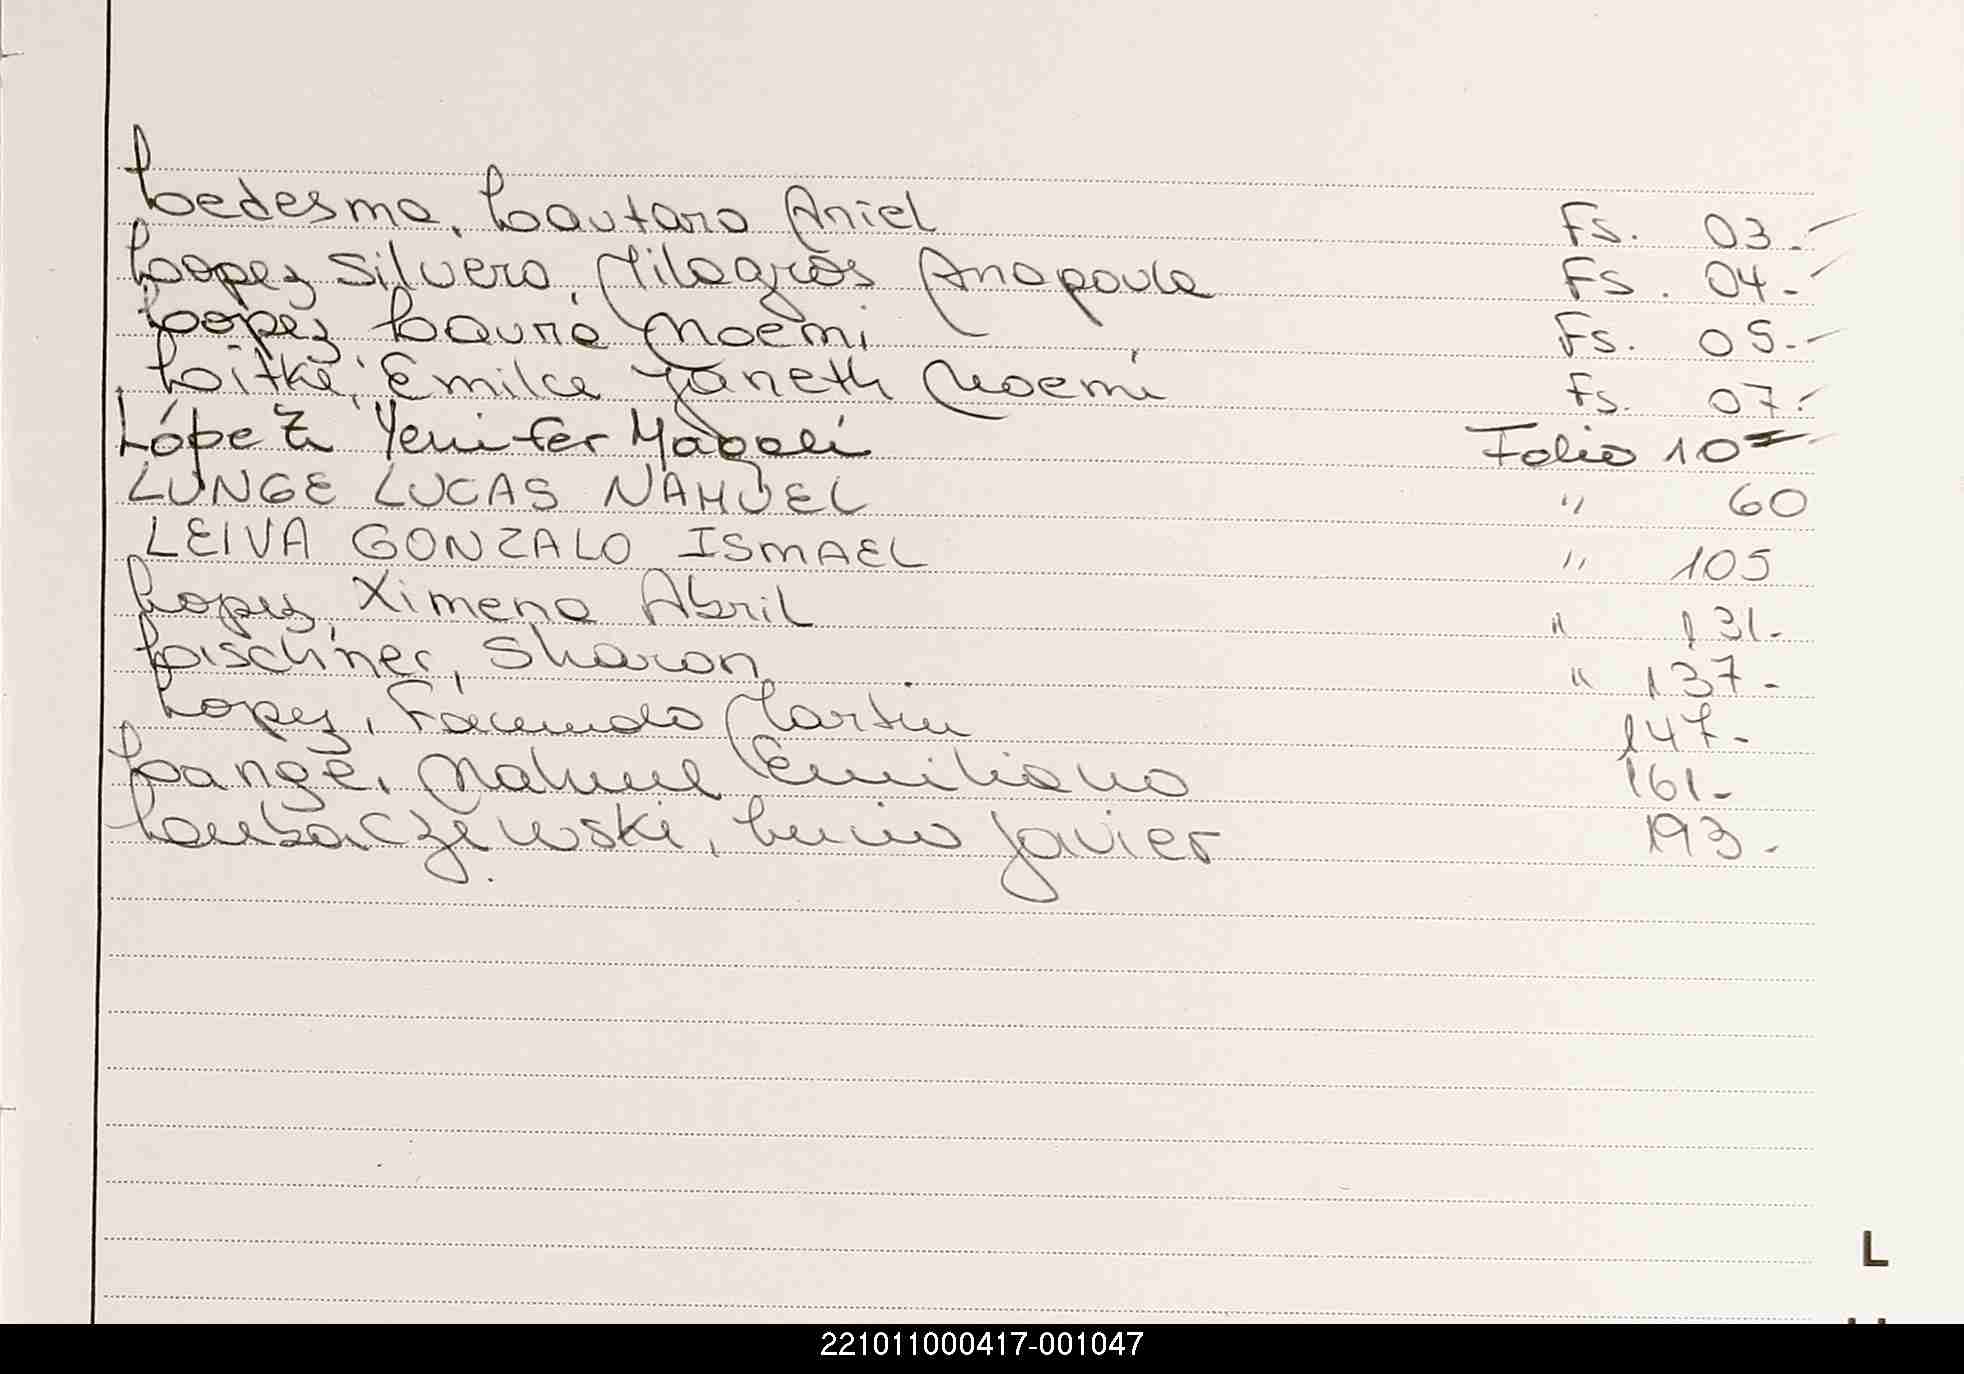 Ledesma, Lautaro Aniel Fs. 03.-
Lopez Silvero, Milagros Anapaula Fs. 04.-
Lopez Laura Noemi Fs. 05.-
Litke, Emilce Janeth Noemi Fs. 07.-
López Yenifer Magali Folio 10
LUNGE LUCAS NAHUEL " 60
LEIVA GONZALO ISMAEL " 105
Lopez, Ximena Abril " 131.-
Laischner, Sharon " 137.-
Lopez, Facundo Martin 147.-
Lange, Nahuel Emiliano 161.-
Javier 193.-
L
221011000417-001047